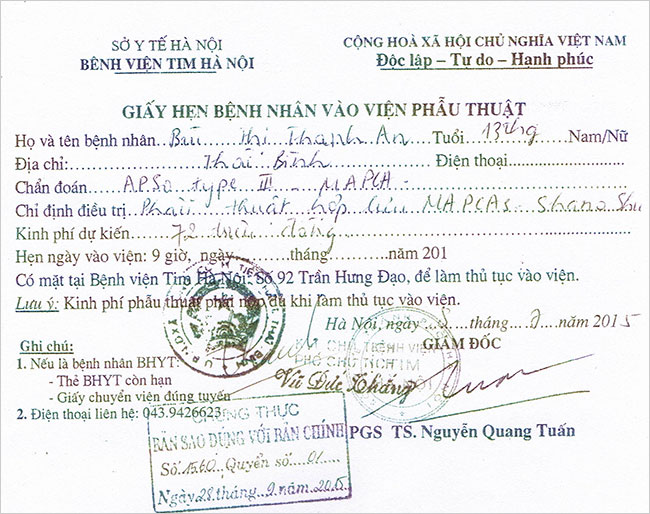 SỞ Y TẾ HÀ NỘI
BỆNH VIỆN TIM HÀ NỘI
CỘNG HOÀ XÃ HỘI CHỦ NGHĨA VIỆT NAM
Độc lập – Tự do – Hạnh phúc
GIẤY HẸN BỆNH NHÂN VÀO VIỆN PHẪU THUẬT
Họ và tên bệnh nhân Bùi Thị Thanh An Tuổi 13 thg Nam/Nữ
Địa chỉ: Thái Bình Điện thoại
Chẩn đoán APSO type III - MAPCA -
Chỉ định điều trị Phẫu thuật hợp lưu MAPCAs - Shano
Kinh phí dự kiến 72 triệu đồng
Hẹn ngày vào viện: 9 giờ, ngày tháng năm 201
Có mặt tại Bệnh viện Tim Hà Nội: Số 92 Trần Hưng Đạo, để làm thủ tục vào viện.
Lưu ý: Kinh phí phẫu thuật phải nộp đủ khi làm thủ tục vào viện.
Hà Nội, ngày 8 tháng năm 2015
Ghi chú:
GIÁM ĐỐC
1. Nếu là bệnh nhân BHYT:
PHÓ CHỦ TỊCH
- Thẻ BHYT còn hạn
Vũ Đức Thắng
- Giấy chuyển viện đúng tuyến
2. Điện thoại liên hệ: 043.9426623
CHỨNG THỰC
BẢN SAO ĐÚNG VỚI BẢN CHÍNH
PGS TS. Nguyễn Quang Tuấn
Số 1560 Quyển số 01
Ngày 28 tháng 9 năm 2015